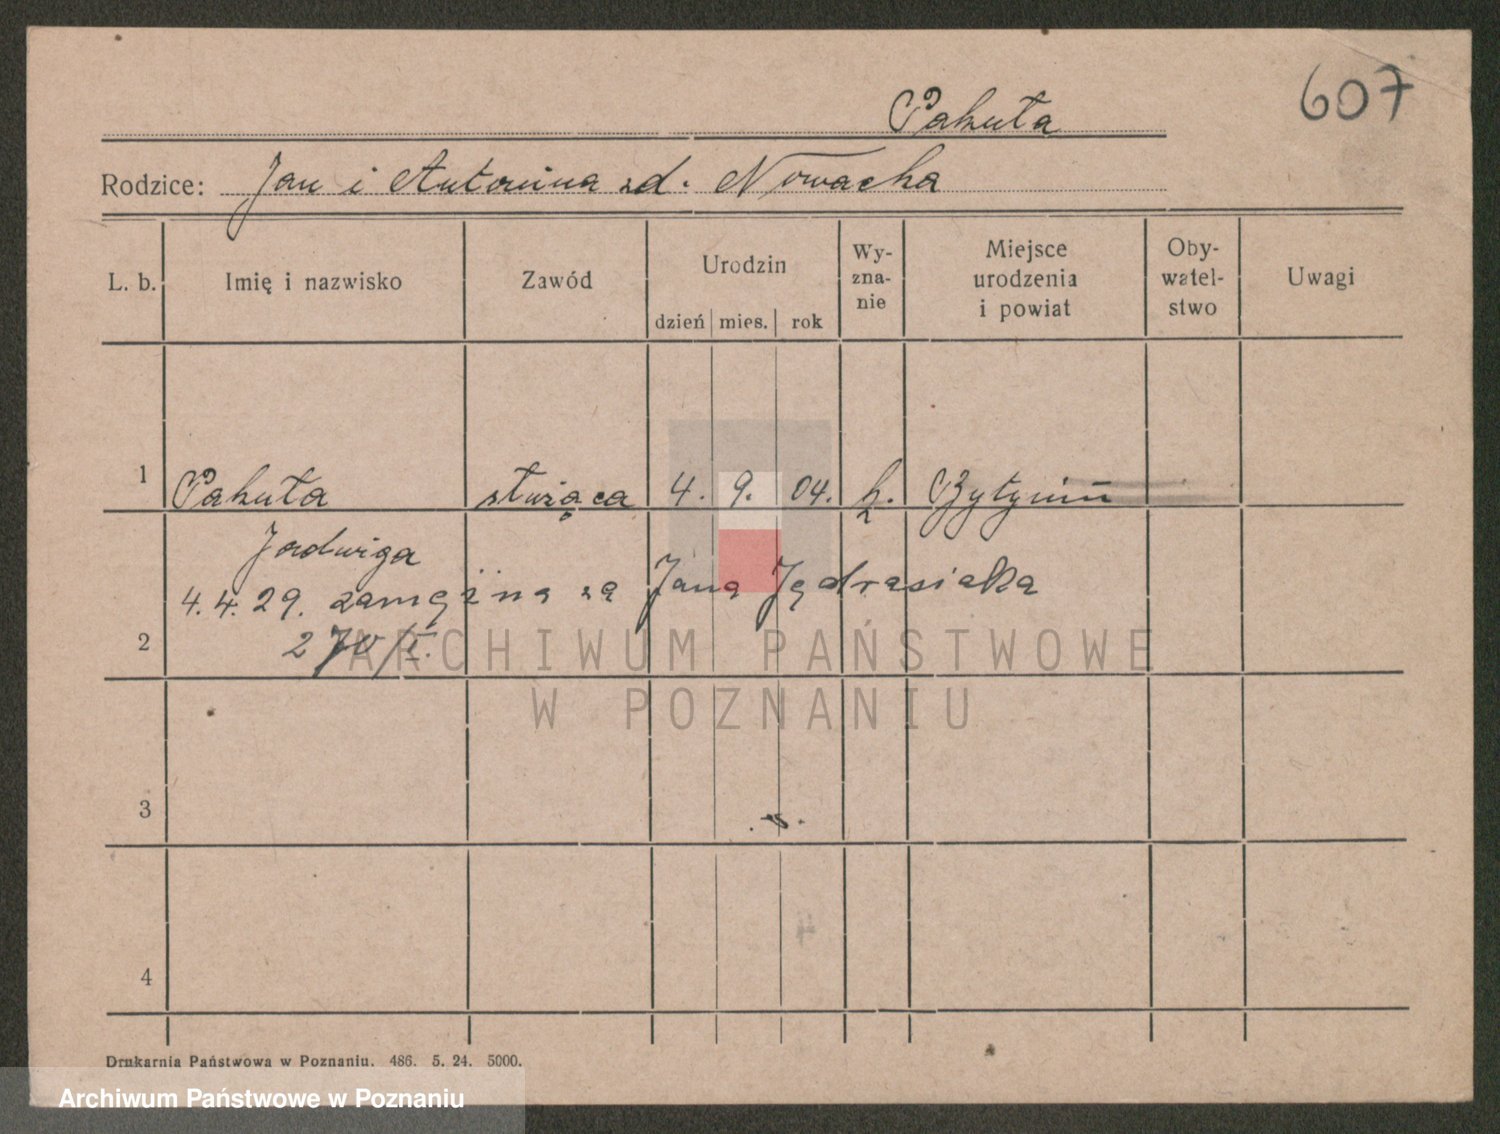 607
Pakuła
Rodzice: Jan i Antonina zd. Nowacka
L. b. Imię i nazwisko Zawód Urodzin dzień mies. rok Wy-zna-nie Miejsce urodzenia i powiat Oby-watel-stwo Uwagi
1 Pakuła służąca 4. 9. 04. k. Bytyniń
Jadwiga
4.4.29. zamężna za Jana Jędrasiaka
2
3
4
Drukarnia Państwowa w Poznaniu. 486. 5. 24. 5000.
ARCHIWUM PAŃSTWOWE
W POZNANIU
Archiwum Państwowe w Poznaniu